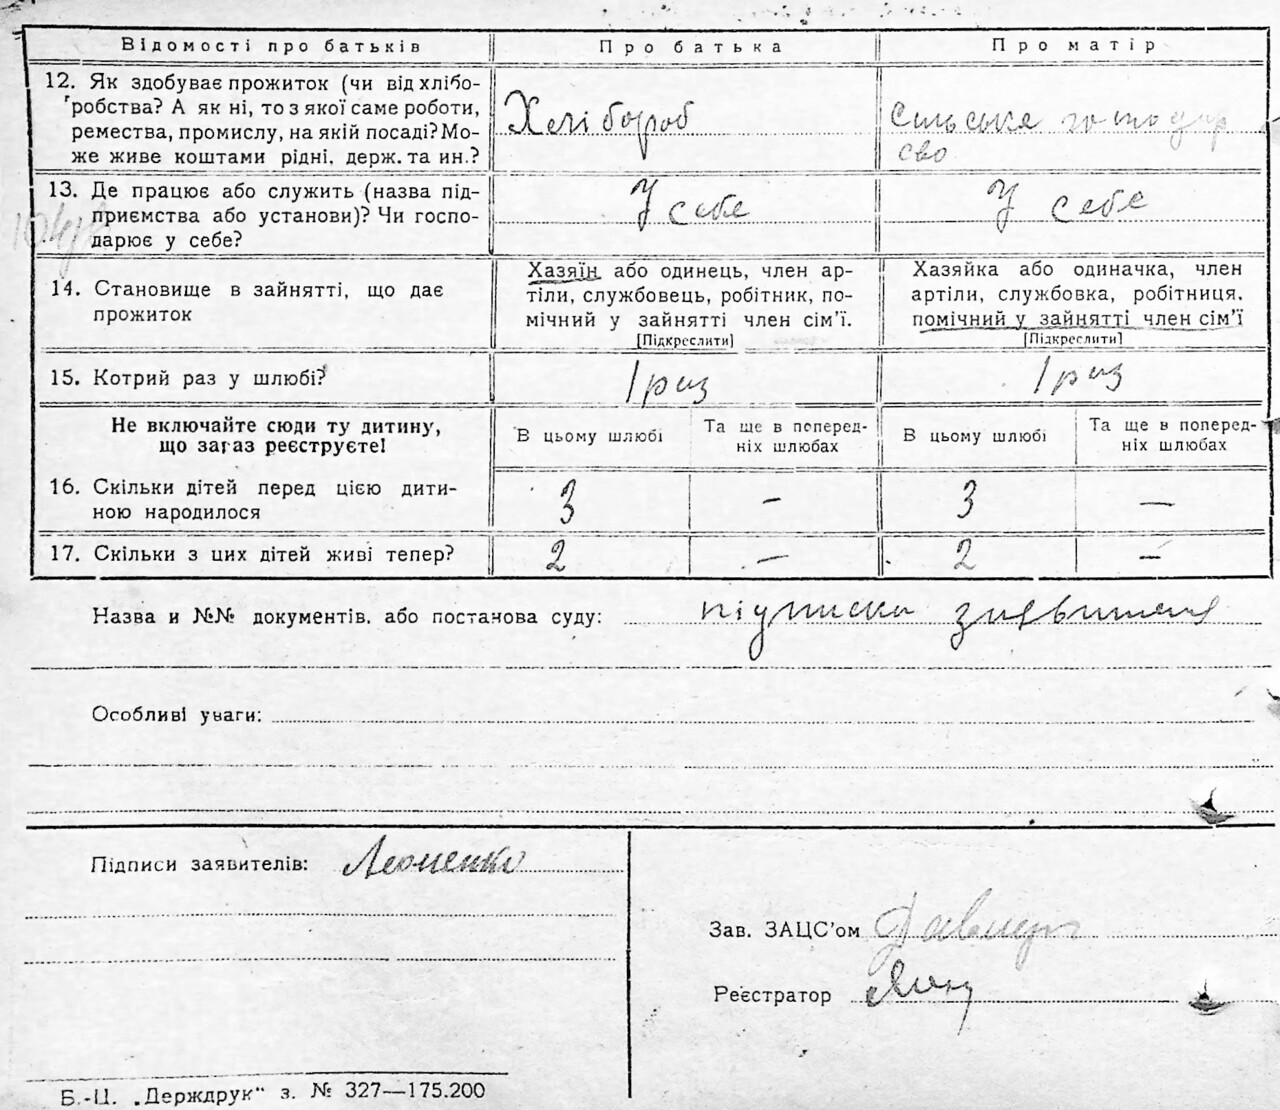 Відомості про батьків
Про батька
Про матір
12. Як здобуває прожиток (чи від хлібо-
робства? А як ні, то з якої саме роботи,
ремества, промислу, на якій посаді? Мо-
же живе коштами рідні, держ. та ин.?
Хлібороб
Сильське господар
сво
13. Де працює або служить (назва під-
приємства або установи)? Чи госпо-
дарює у себе?
У себе
У себе
14. Становище в зайнятті, що дає
прожиток
Хазяїн або одинець, член ар-
тіли, службовець, робітник, по-
мічний у зайнятті член сім'ї.
[Підкреслити]
Хазяйка або одиначка, член
артіли, службовка, робітниця.
помічний у зайнятті член сім'ї
[Підкреслити]
15. Котрий раз у шлюбі?
1 раз
1 раз
Не включайте сюди ту дитину,
що зараз реєструєте!
В цьому шлюбі
Та ще в поперед-
ніх шлюбах
В цьому шлюбі
Та ще в поперед-
ніх шлюбах
16. Скільки дітей перед цією дити-
ною народилося
3
-
3
—
17. Скільки з цих дітей живі тепер?
2
—
2
—
Назва и №№ документів. або постанова суду: підписка
Особливі уваги:
Підписи заявителів: Леоненко
Зав. ЗАЦС'ом
Реєстратор
Б.-Ц. „Держдрук" з. № 327—175.200